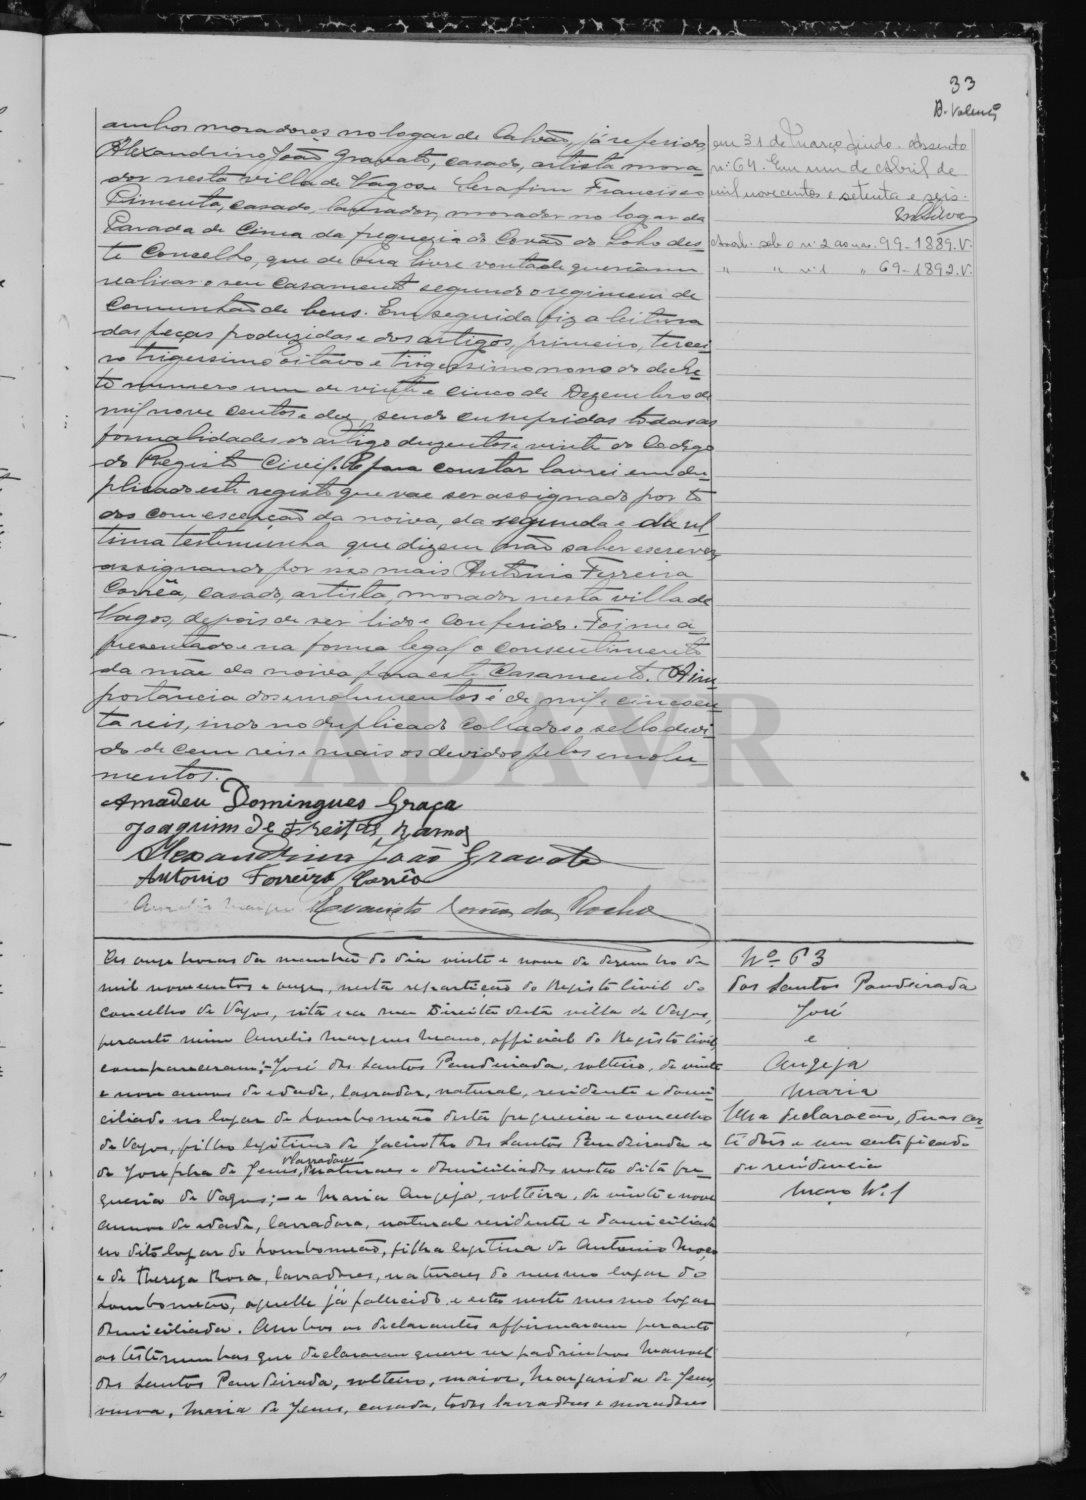 33
A. Valente
ambos moradores no logar de Calvão, já referido
Alexandrino João Gravato, casado, artista mora-
dor nesta villa de Vagos e Serafim Francisco
Pimenta, casado, lavrador, morador no logar da
Parada de Cima da freguezia do Covão do Lobo des-
te Concelho, que de sua livre vontade queriam
realisar o seu casamento segundo o regimem de
Comunhão de bens. Em seguida fiz a leitura
das peças produzidas e dos artigos, primeiro, tercei-
ro trigessimo oitavo e trigessimo nono do decre-
to numero um de vinte e cinco de Dezembro de
mil nove centos e dez, sendo cumpridas todas as
formalidades do artigo duzentos e vinte do Codigo
do Registo Civil. E para constar lavrei em du-
plicado este registo que vae ser assignado por to
dos com excepção da noiva, da segunda e da ul
tima testimunha que dizem não saber escrever
assignando por isso mais Antonio Ferreira
Corrêa, casado, artista, morador nesta villa de
Vagos, depois de ser lido e conferido. Foi me a-
presentado e na forma legal o consentimento
da mãe da noiva para este casamento. A im-
portancia dos emolumentos é de mil e cincoen-
ta reis, indo no duplicado collado o sello devi-
do de cem reis e mais os devidos pelos emolu-
mentos.
Amadeu Domingues Graça
Joaquim de Freitas Ramos
Alexandrino João Gravato
Antonio Ferreira Corrêa
Evaristo Corrêa da Rocha
em 31 de Março findo. Assento
nº 64. Em um de Abril de
mil novecentos e setenta e seis.
Averb. sob o nº 2 ao nº 99-1889. V.
" " nº 1 " 69-1892. V.
As onze horas da manhã do dia vinte e nove de dezembro de
mil novecentos e onze, nesta repartição do Registo Civil do
concelho de Vagos, sita na rua Direita desta villa de Vagos,
perante mim Aurelio Marques Mano, official do Registo Civil
compareceram:- José dos Santos Pandeirada, solteiro, de vinte
e nove annos de edade, lavrador, natural, residente e domi-
ciliado no logar de Lombomeão desta freguezia e concelho
de Vagos, filho legitimo de Jacintho dos Santos Pandeirada e
de Josepha de Jesus, lavradores, naturaes e domiciliados nesta dita fre-
guezia de Vagos;- e Maria Angeja, solteira, de vinte e nove
annos de edade, lavradora, natural residente e domiciliada
no dito logar de Lombomeão, filha legitima de Antonio Moço
e de Thereza Rosa, lavradores, naturaes do mesmo logar do
Lombomeão, aquelle já fallecido e esta neste mesmo logar
domiciliada. Ambos os declarantes affirmaram perante
as testemunhas que declararam querer ser padrinhos Manoel
dos Santos Pandeirada, solteiro, maior, Margarida de Jesus,
viuva, Maria de Jesus, casada, todos lavradores e moradores
Nº 63
dos Santos Pandeirada
José
e
Angeja
Maria
Uma declaração, duas cer-
tidões e um certificado
de residencia
Maço Nº 1
ADAVR